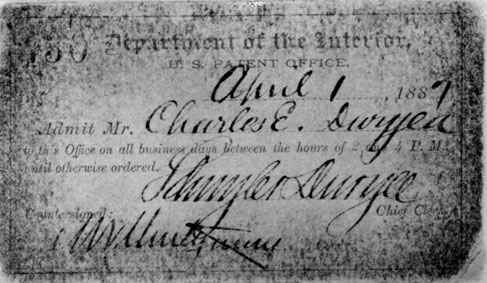 Department of the Interior,
U. S. PATENT OFFICE.
April 1, 1887
Admit Mr. Charles E. Duryea
to this Office on all business days between the hours of 2 and 4 P. M.
until otherwise ordered.
Schuyler Duryee
Chief Clerk
Countersigned: